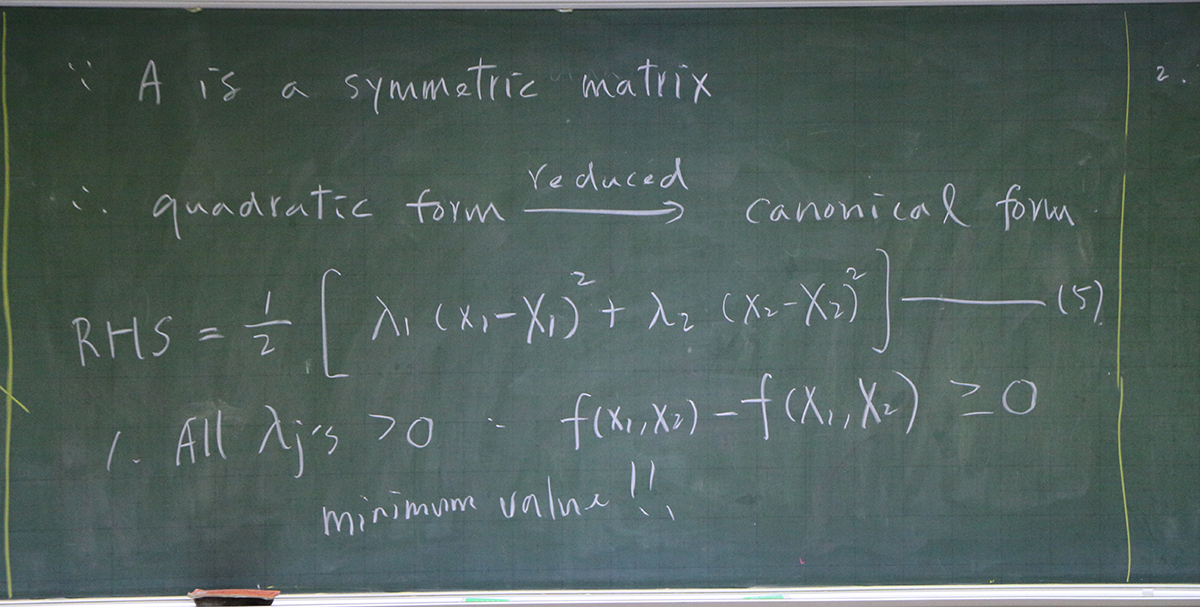 ∵ A is a symmetric matrix
∴ quadratic form reduced⟶ canonical form
RHS = 1/2 [ λ₁ (x₁-X₁)² + λ₂ (x₂-X₂)² ] —— (5)
1. All λj's >0 : f(x₁,x₂) - f(X₁,X₂) ≥0
minimum value!!
2.